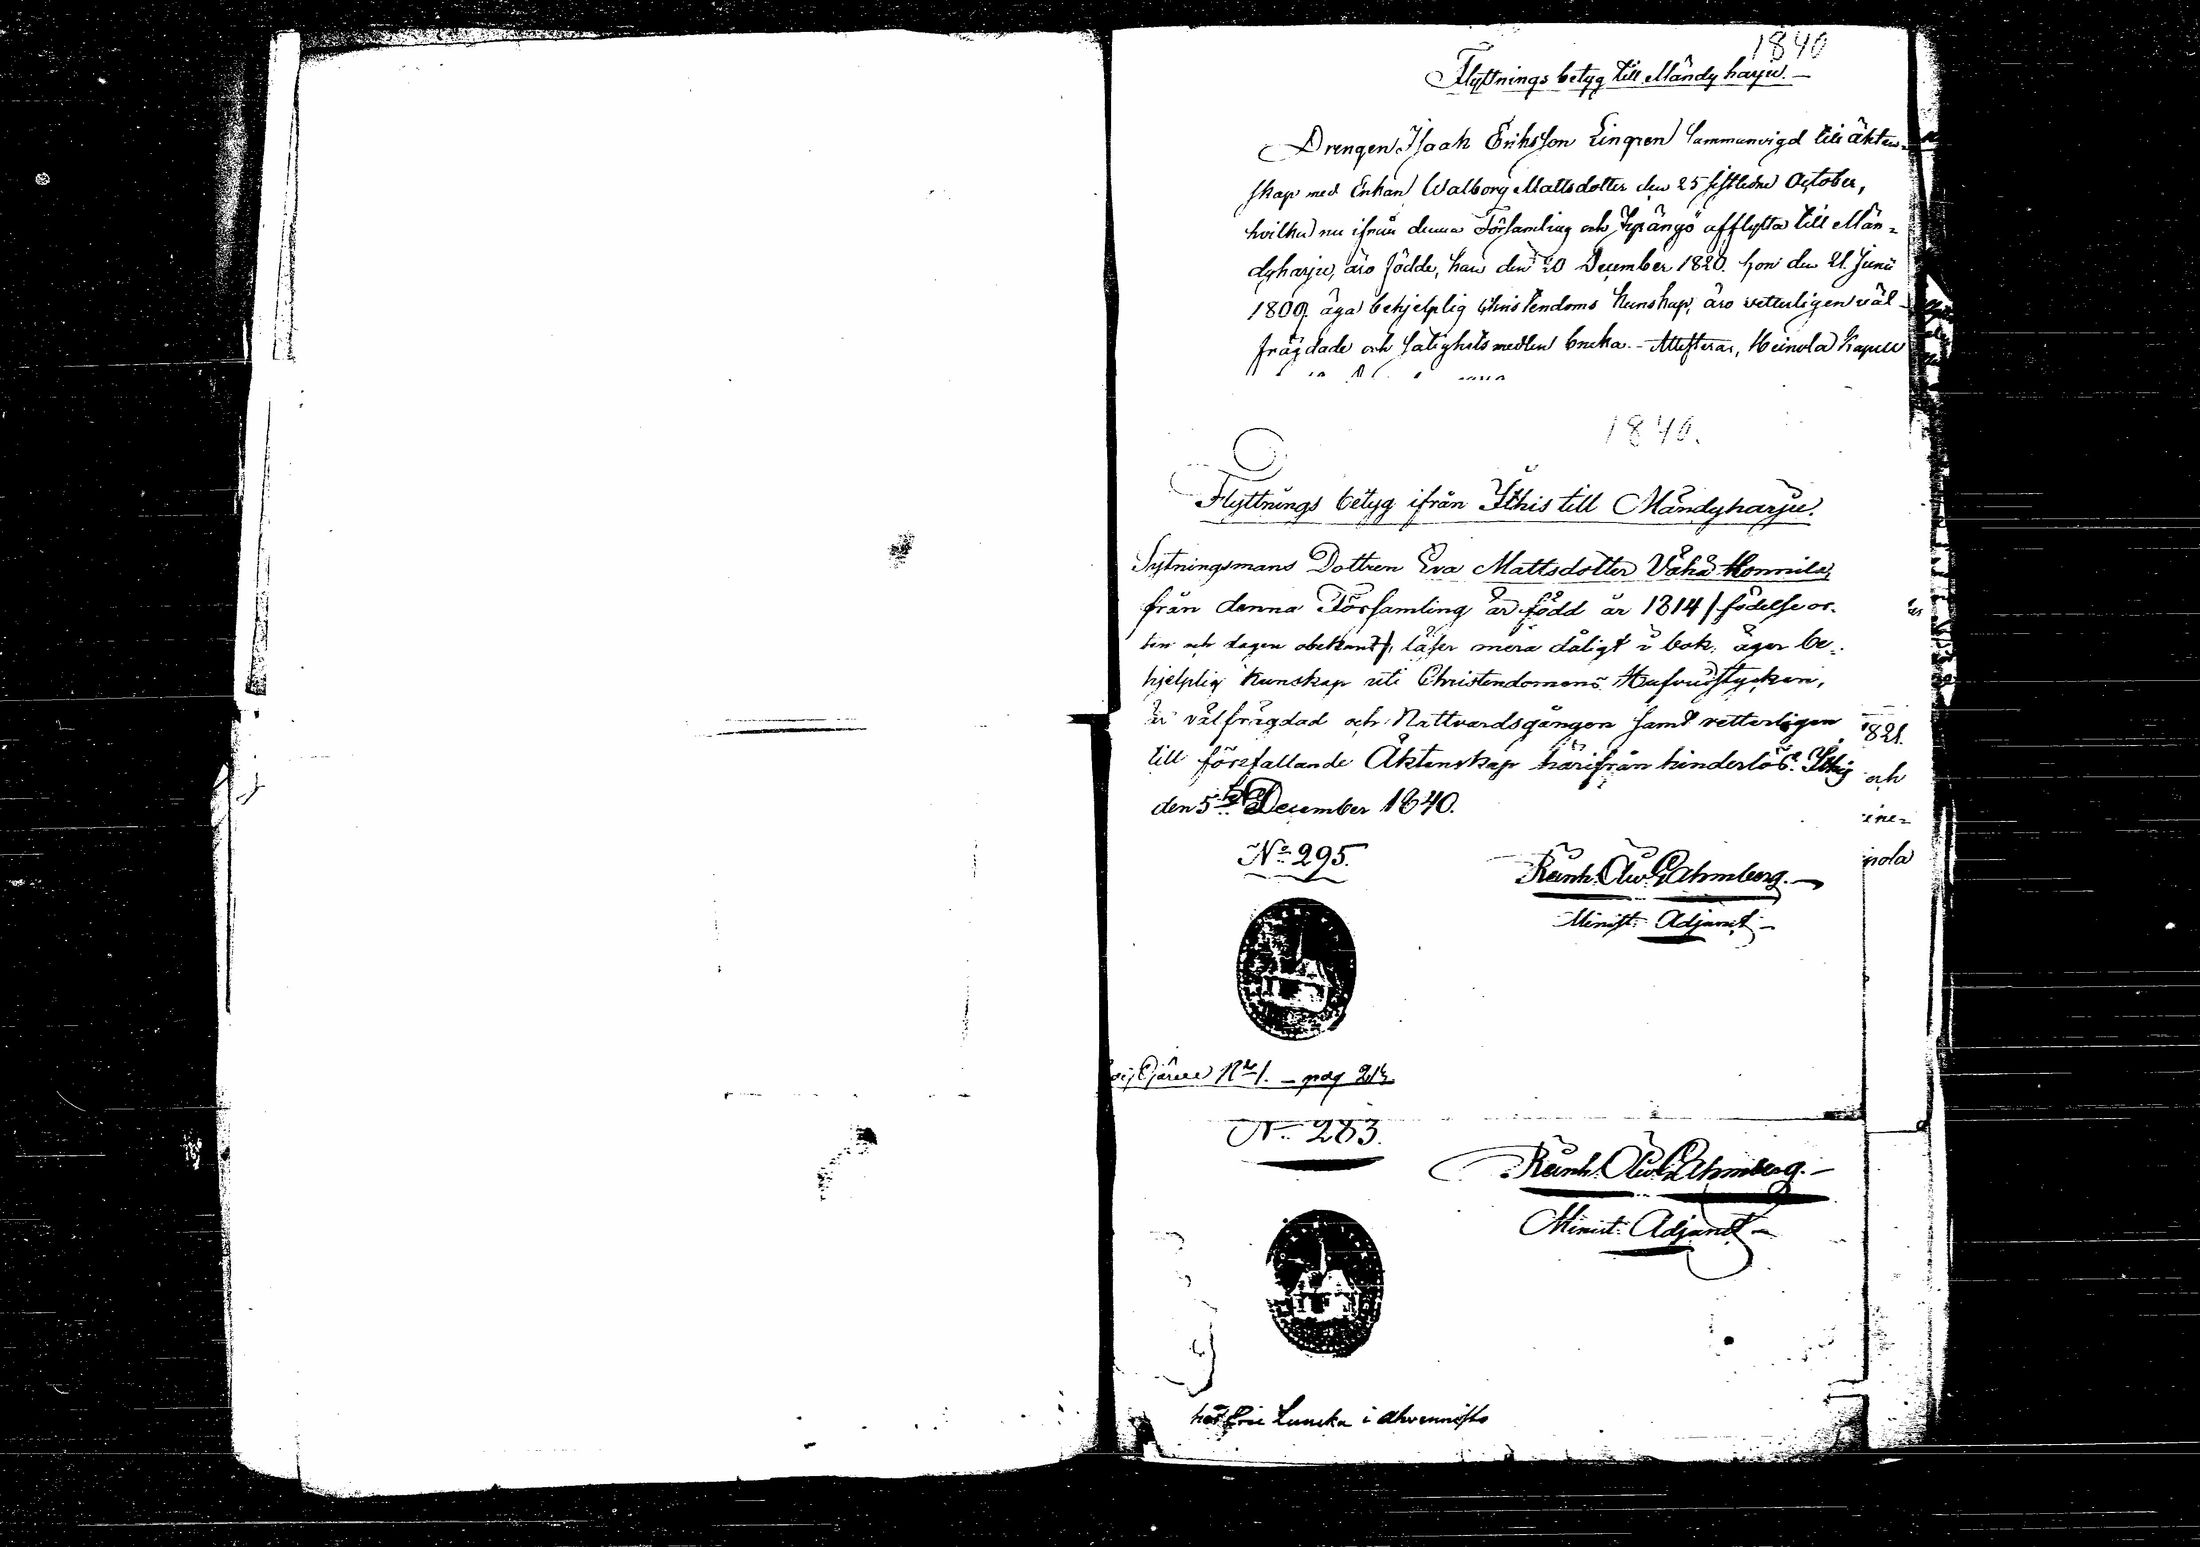 1840
Flyttnings betyg till Mändyharju.
Drengen Isaak Eriksson Lingren sammanvigd till äkten-
skap med Enkan Walborg Mattsdotter den 25 sistledne October,
hvilka nu ifrån denna Församling och afflytta till Män-
dyharju, äro födde, han den 20 December 1820. hon den 21. Junii
1809. äga behjelplig Christendoms kunskap, äro vetterligen väl-
frägdade och salighets medlen bruka. Attesterar, Heinola Kapell
1840.
Flyttnings betyg ifrån Ithis till Mändyharju.
Sytningsmans Dottren Eva Mattsdotter Vähä Konnila,
från denna Församling är född år 1814 /födelse or-
ten och dagen obekant/, läser mera dåligt i bok, äger be-
hjelplig kunskap uti Christendomens Hufvudstycken,
är välfrägdad och Nattvardsgången samt vetterligen
till förefallande Äktenskap härifrån hinderlös. Ithis
den 5te December 1840.
1821.
och
ine-
nola
No 295.
Reinh. Ahmberg.
Minist. Adjunct
No 1. pag 213
No 283.
Reinh. Ahmberg.
Minist. Adjunct
hos Eric i Ahvenniska